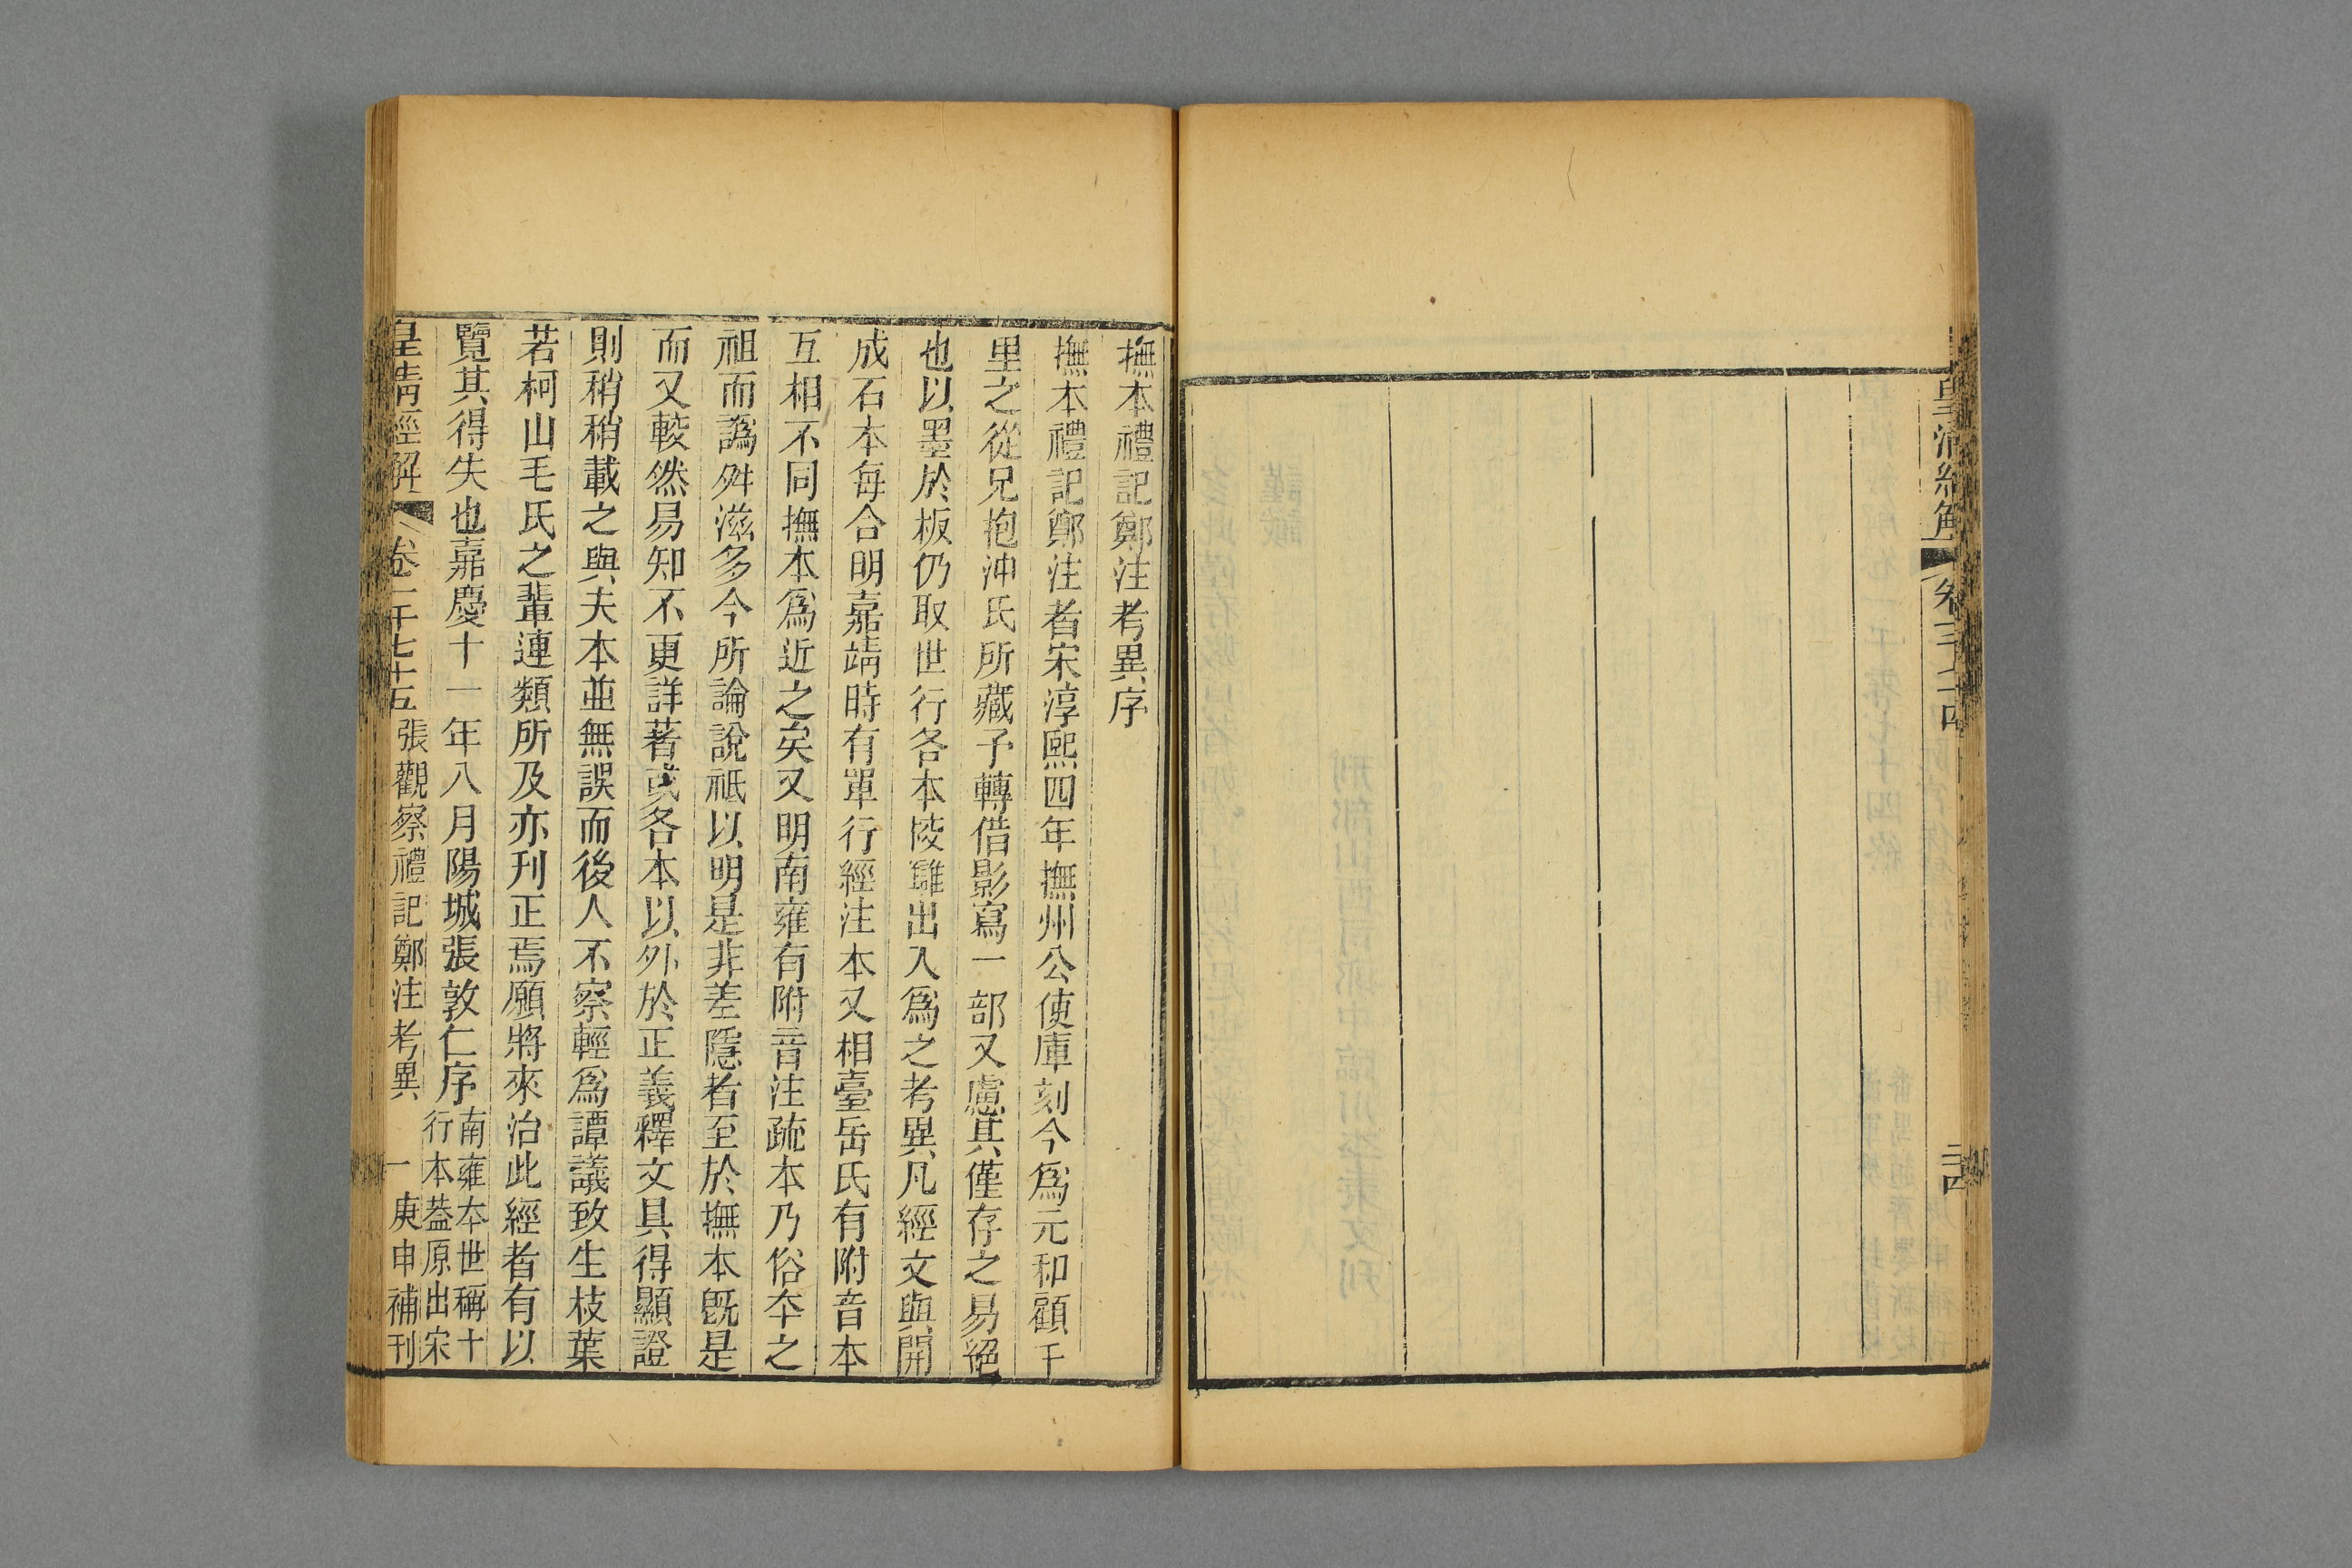 皇清經解
卷
二四
撫本禮記鄭注考異序
撫本禮記鄭注者宋淳熙四年撫州公使庫刻今為元和顧千
里之從兄抱沖氏所藏予轉借影寫一部又慮其僅存之易絕
也以墨於板仍取世行各本㥄讎出入為之考異凡經文與開
成石本每合明嘉靖時有單行經注本又相臺岳氏有附音本
互相不同撫本為近之矣又明南雍有附音注疏本乃俗本之
祖而譌舛滋多今所論說祇以明是非差隱者至於撫本旣是
而又較然易知不更詳著或各本以外於正義釋文具得顯證
則稍稍載之與夫本並無誤而後人不察輕為譚議致生枝葉
若柯山毛氏之輩連類所及亦刊正焉願將來治此經者有以
覽其得失也嘉慶十一年八月陽城張敦仁序
南雍本世稱十
行本蓋原出宋
皇清經解
卷一千七十五
張觀察禮記鄭注考異
一
庚申補刊